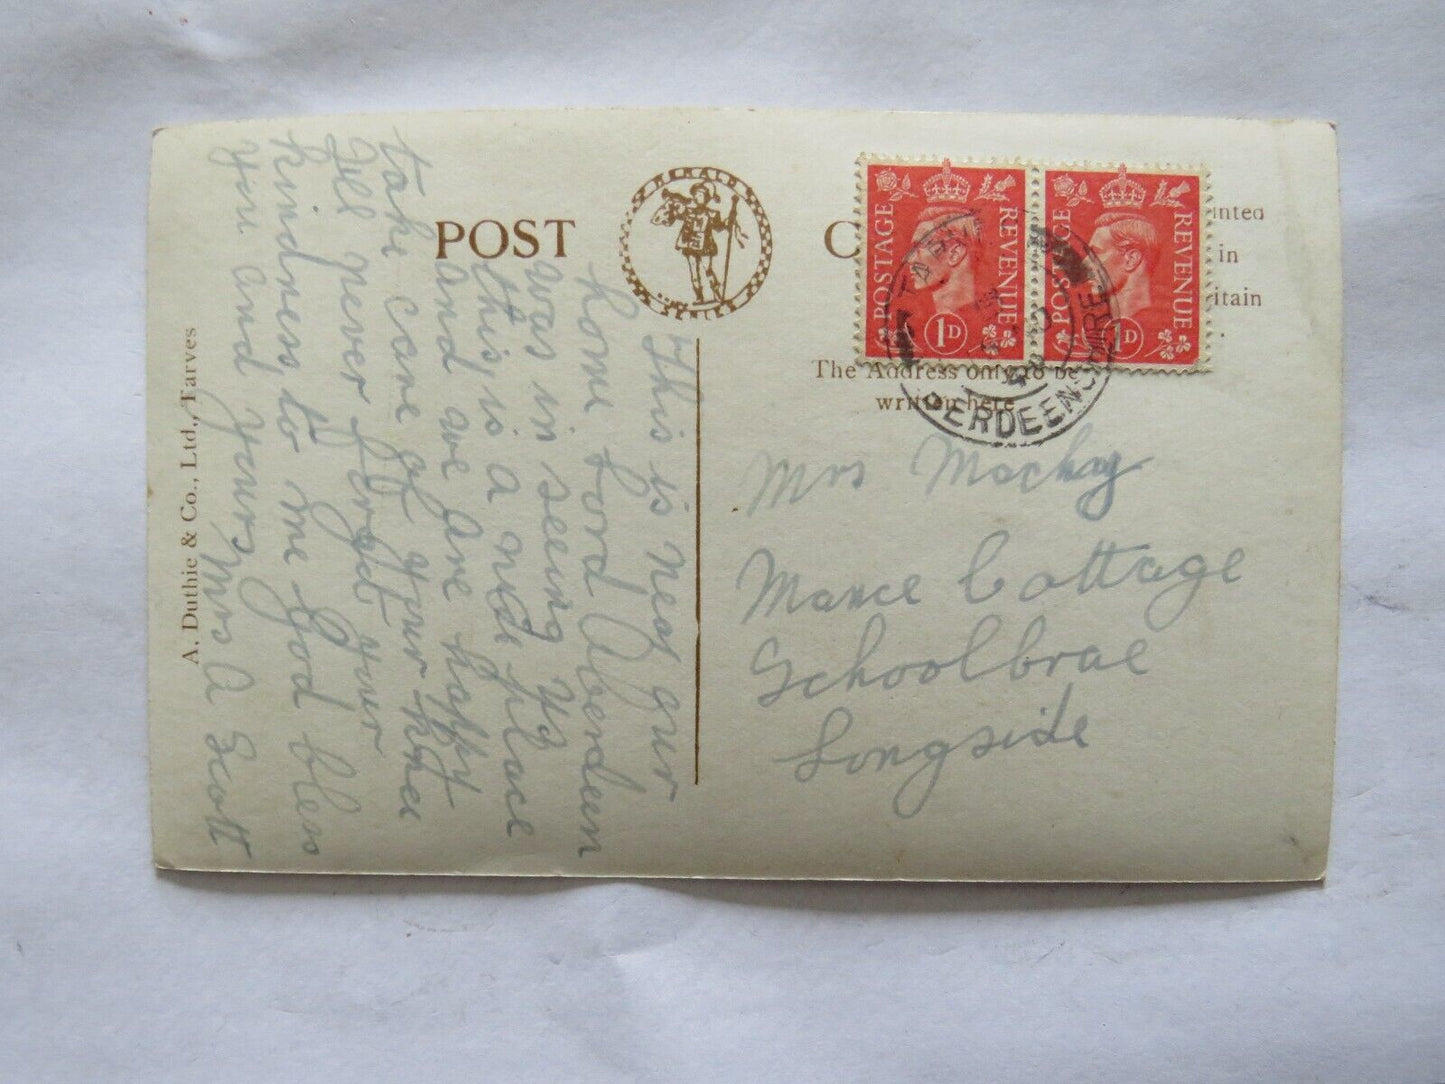 POST C
HERALD
SERIES
Printed
in
Britain
The Address only to be
written here
POSTAGE REVENUE
1D
POSTAGE REVENUE
1D
TARVES
ABERDEENSHIRE
OC
48
A. Duthie & Co., Ltd., Tarves
This is near our
home Lord Aberdeen
was in seeing us
this is a nice place
and we are happy
take care of your knee
Ill never forget your
kindness to me God bless
you and yours Mrs A Scott
Mrs Mackay
Manse Cottage
Schoolbrae
Longside